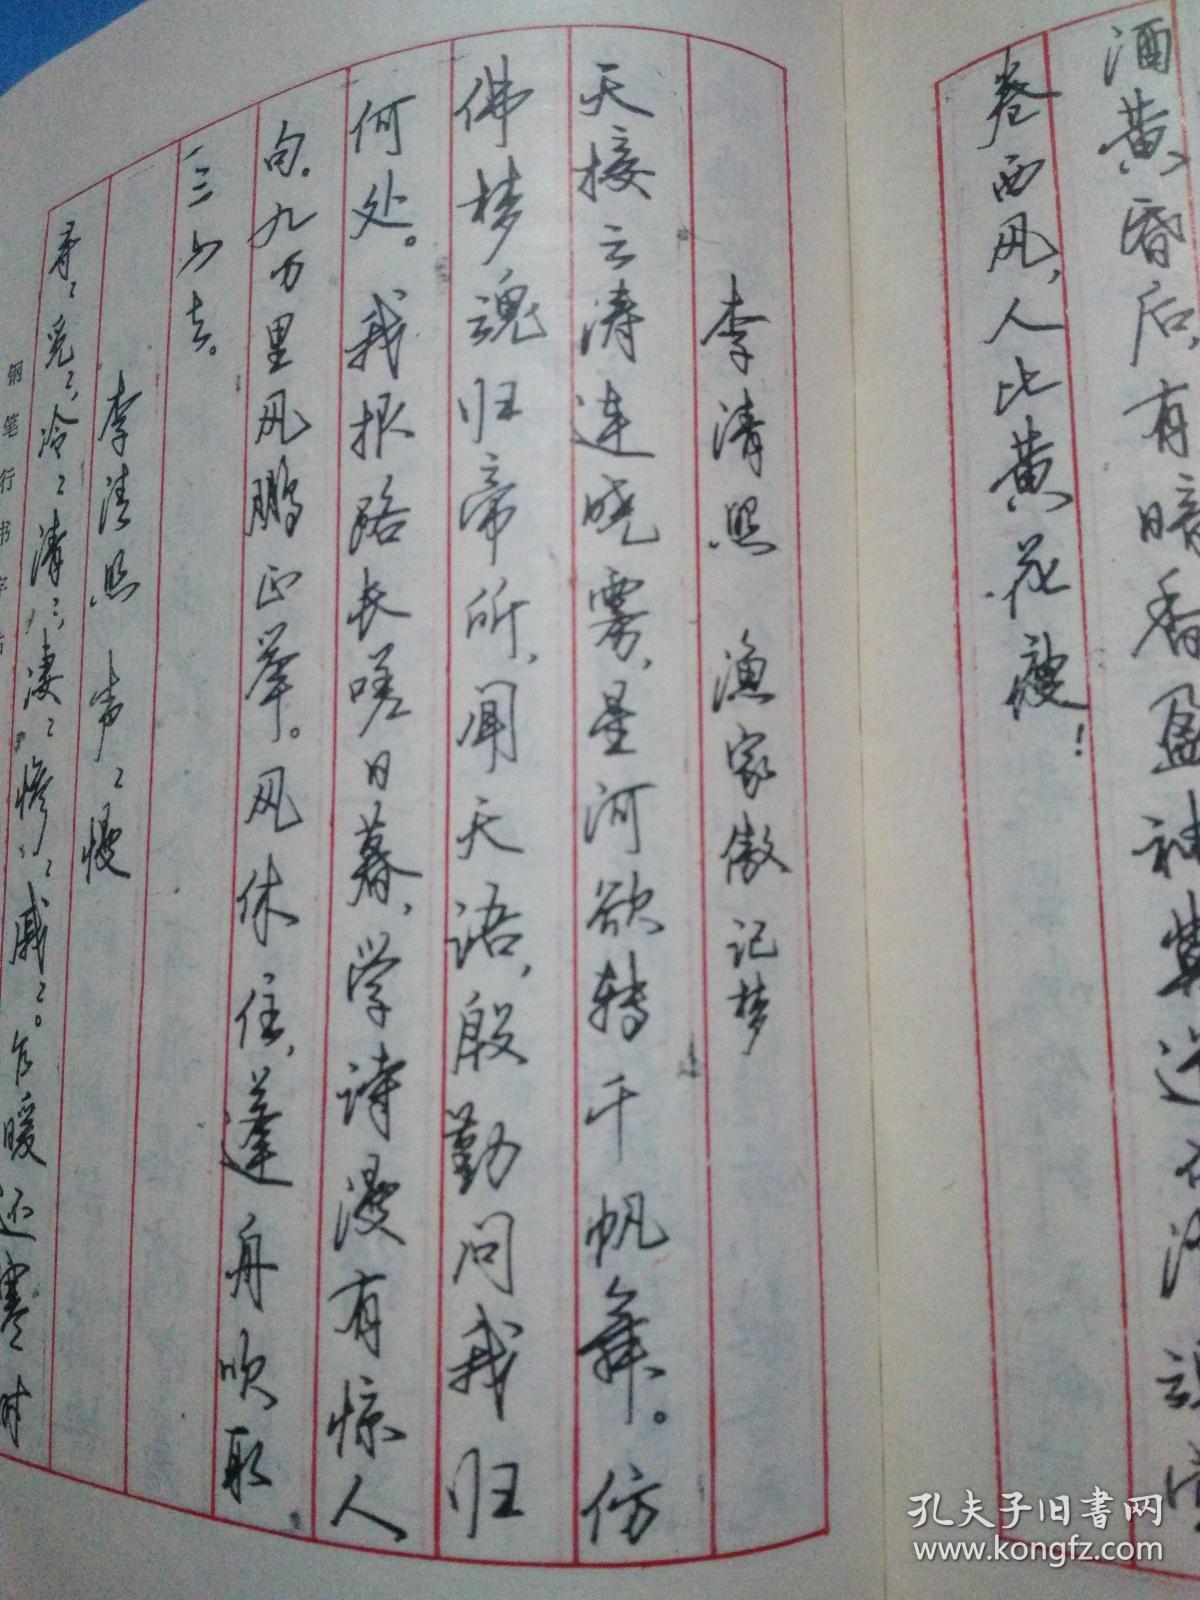 酒黄昏后，有暗香盈袖莫道不消魂
卷西风，人比黄花瘦！
李清照 渔家傲 记梦
天接云涛连晓雾，星河欲转千帆舞。仿
佛梦魂归帝所，闻天语，殷勤问我归
何处。我报路长嗟日暮，学诗漫有惊人
句。九万里风鹏正举。风休住，蓬舟吹取
三山去。
李清照 声〻慢
寻〻觅〻，冷〻清〻，凄〻惨〻戚〻。乍暖还寒时
钢笔行书字帖
孔夫子旧书网
www.kongfz.com